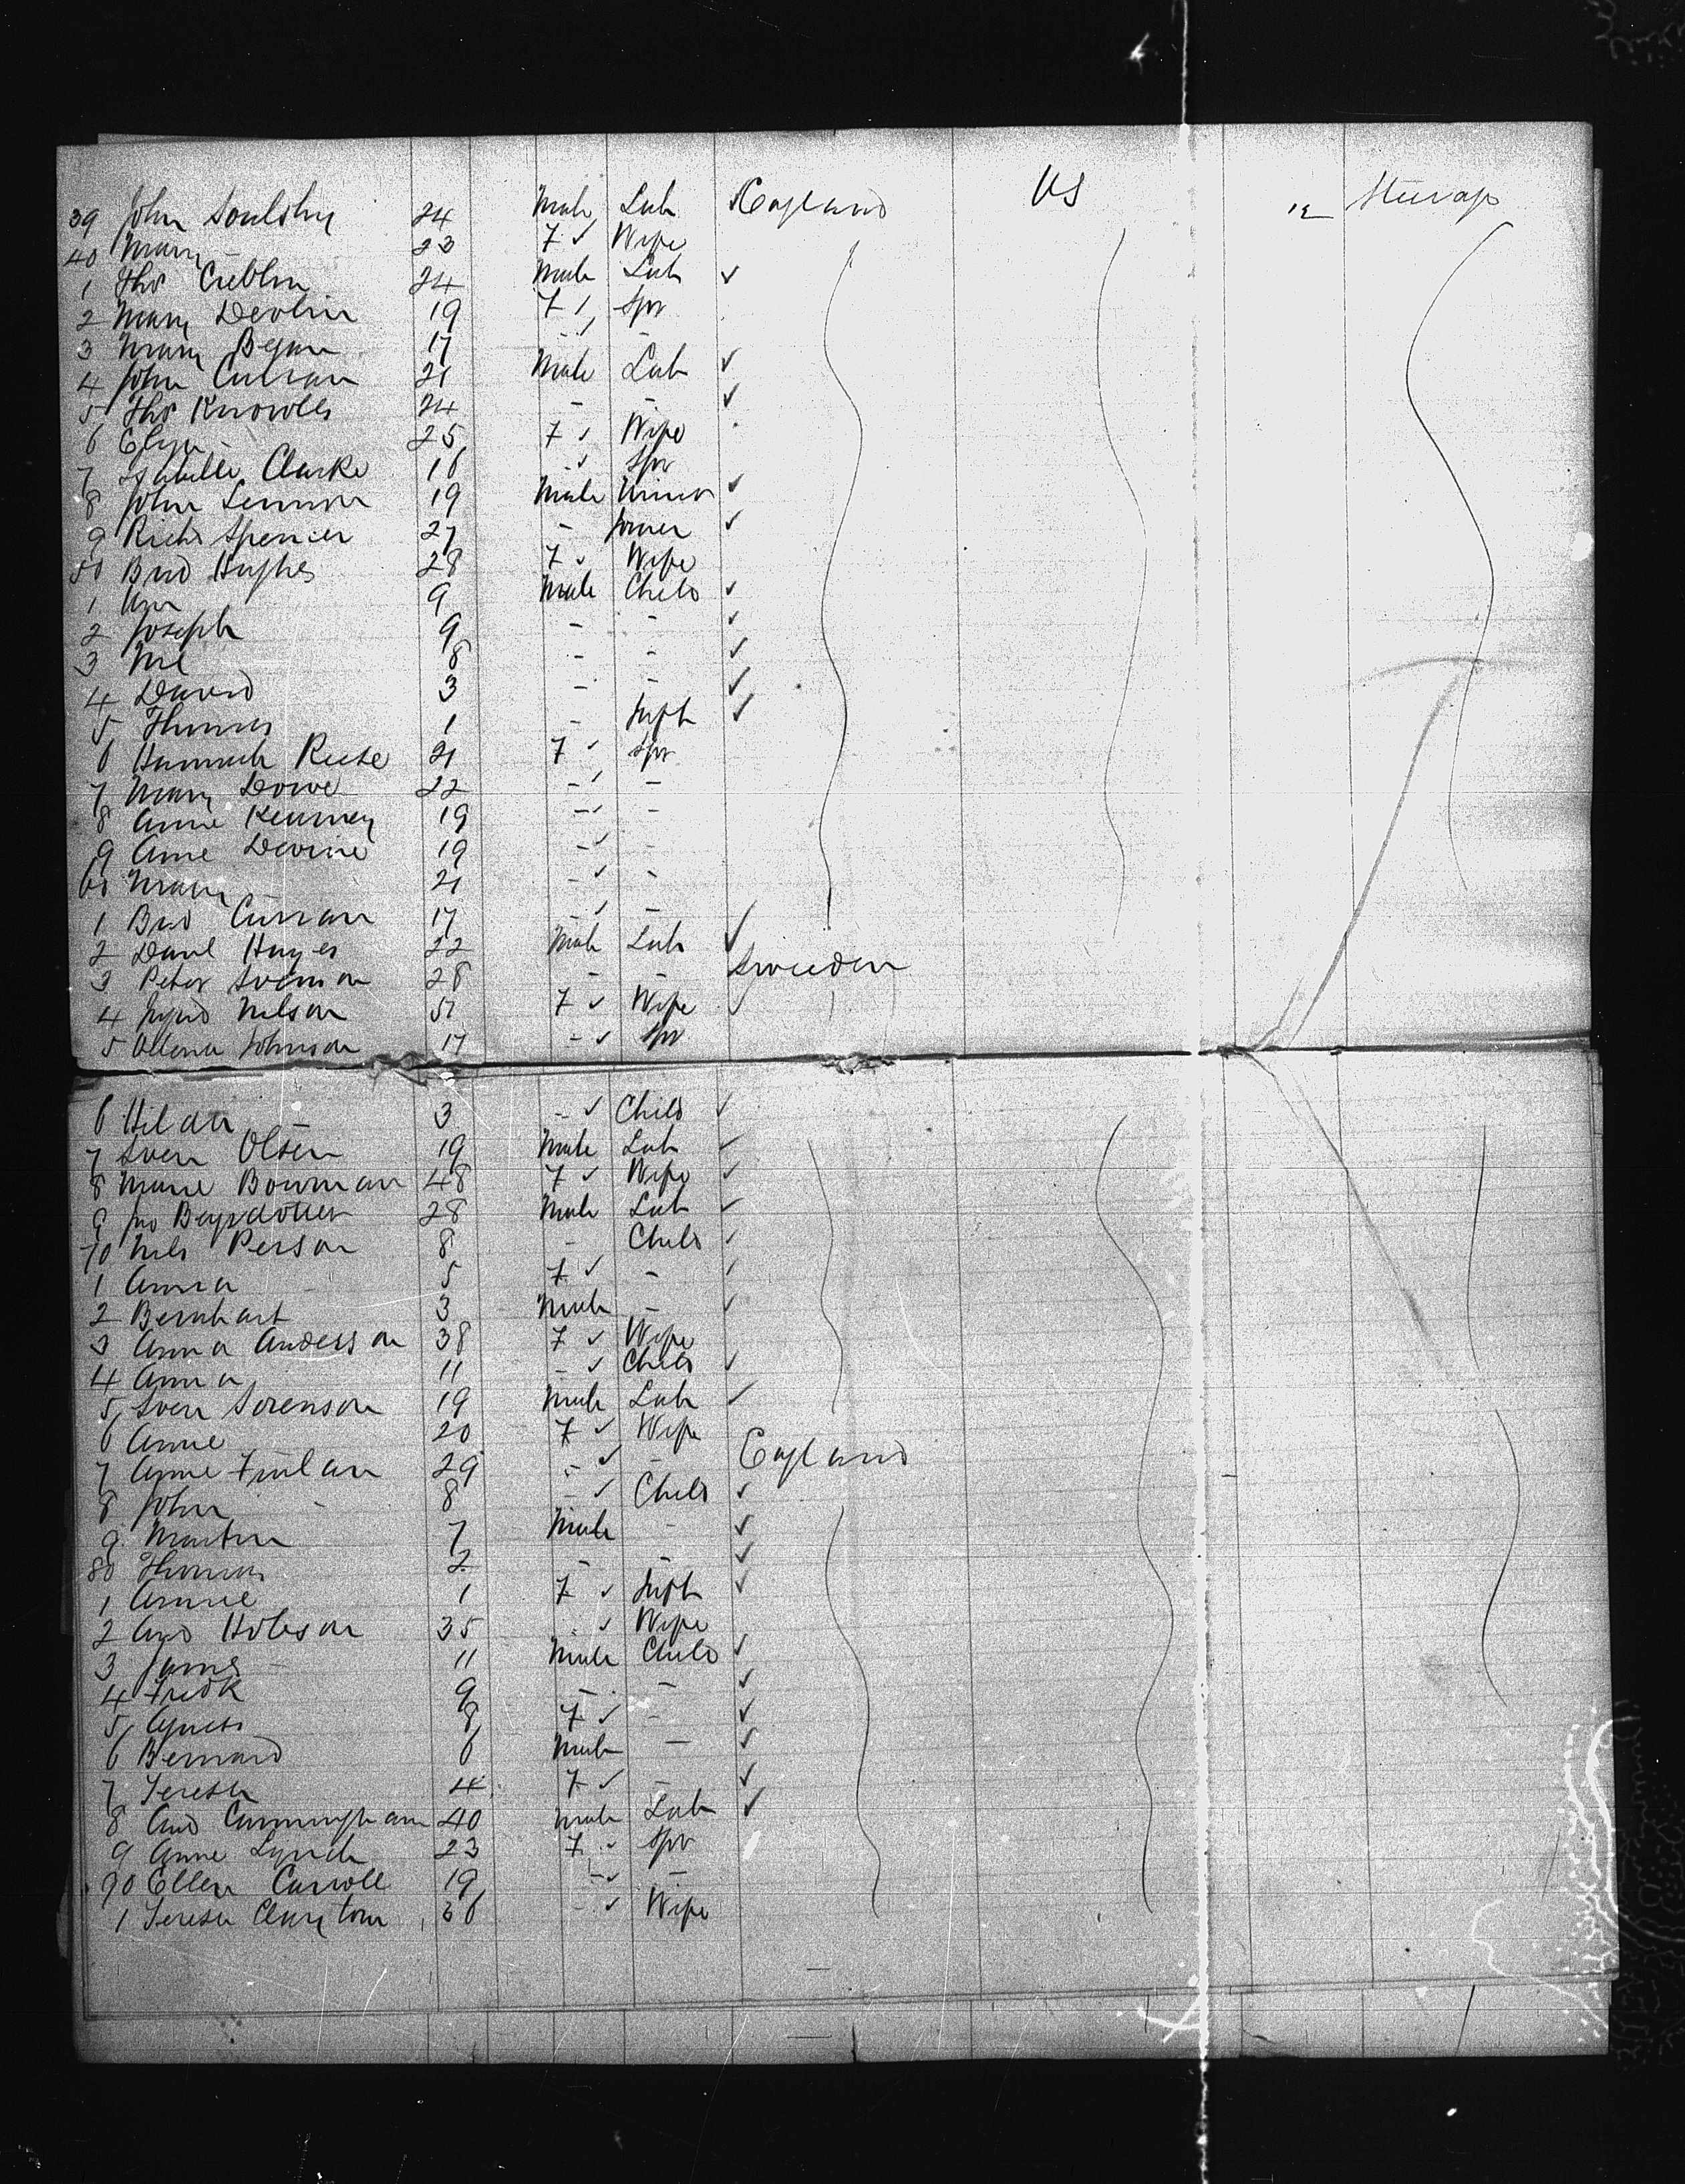 39 John Soulsby 24 Male Lab England US Steerage
40 Mary - 23 F ✓ Wife
1 Thos Criblin 24 Male Lab ✓
2 Mary Devlin 19 F ✓ Spr
3 Mary Began 17 - ✓ -
4 John Curran 21 Male Lab ✓
5 Thos Knowles 24 - - ✓
6 Eliza - 25 F ✓ Wife
7 Isabella Clarke 16 - ✓ Spr
8 John Lennon 19 Male Miner ✓
9 Richd Spencer 27 - Joiner ✓
50 Brid Hughes 28 F ✓ Wife
1 Wm 9 Male Child ✓
2 Joseph 9 - - ✓
3 Ml 8 - - ✓
4 David 3 - - ✓
5 Thomas 1 - Inft ✓
6 Hannah Reese 21 F ✓ Spr
7 Mary Dowe 22 - ✓ -
8 Anne Kearney 19 - ✓ -
9 Anne Devine 19 - ✓ -
60 Mary - 21 - ✓ -
1 Brid Curran 17 - ✓ -
2 Danl Hayes 22 Male Lab ✓
3 Peter Svenson 28 - - Sweeden
4 Ingrid Nelson 51 F ✓ Wife ✓
5 Ollena Johnson 17 - ✓ Spr
6 Hilda - 3 - ✓ Child ✓
7 Sven Olsen 19 Male Lab ✓
8 Marie Bowman 48 F ✓ Wife ✓
9 28 Male Lab ✓
70 Nels Person 8 - Child ✓
1 Anna 5 F ✓ - ✓
2 Bernhart 3 Male - ✓
3 Anna Anderson 38 F ✓ Wife
4 Anna 11 - ✓ Child ✓
5 Sven Sorenson 19 Male Lab ✓
6 Anne 20 F ✓ Wife
7 Anne Finlan 29 - ✓ - England
8 John - 8 - ✓ Child ✓
9 Martin 7 Male - ✓
80 Thomas 2 - - ✓
1 Annie 1 F ✓ Inft ✓
2 Hobson 35 - ✓ Wife
3 James - 11 Male Child ✓
4 Fredk 9 - - ✓
5 Agness 8 F ✓ - ✓
6 Bernard 6 Male - ✓
7 Teresa 4 F ✓ - ✓
8 And Cunningham 40 Male Lab ✓
9 Anne Lynch 23 F ✓ Spr
90 Ellen Carroll 19 - ✓ -
1 Teresa Clayton 36 - ✓ Wife